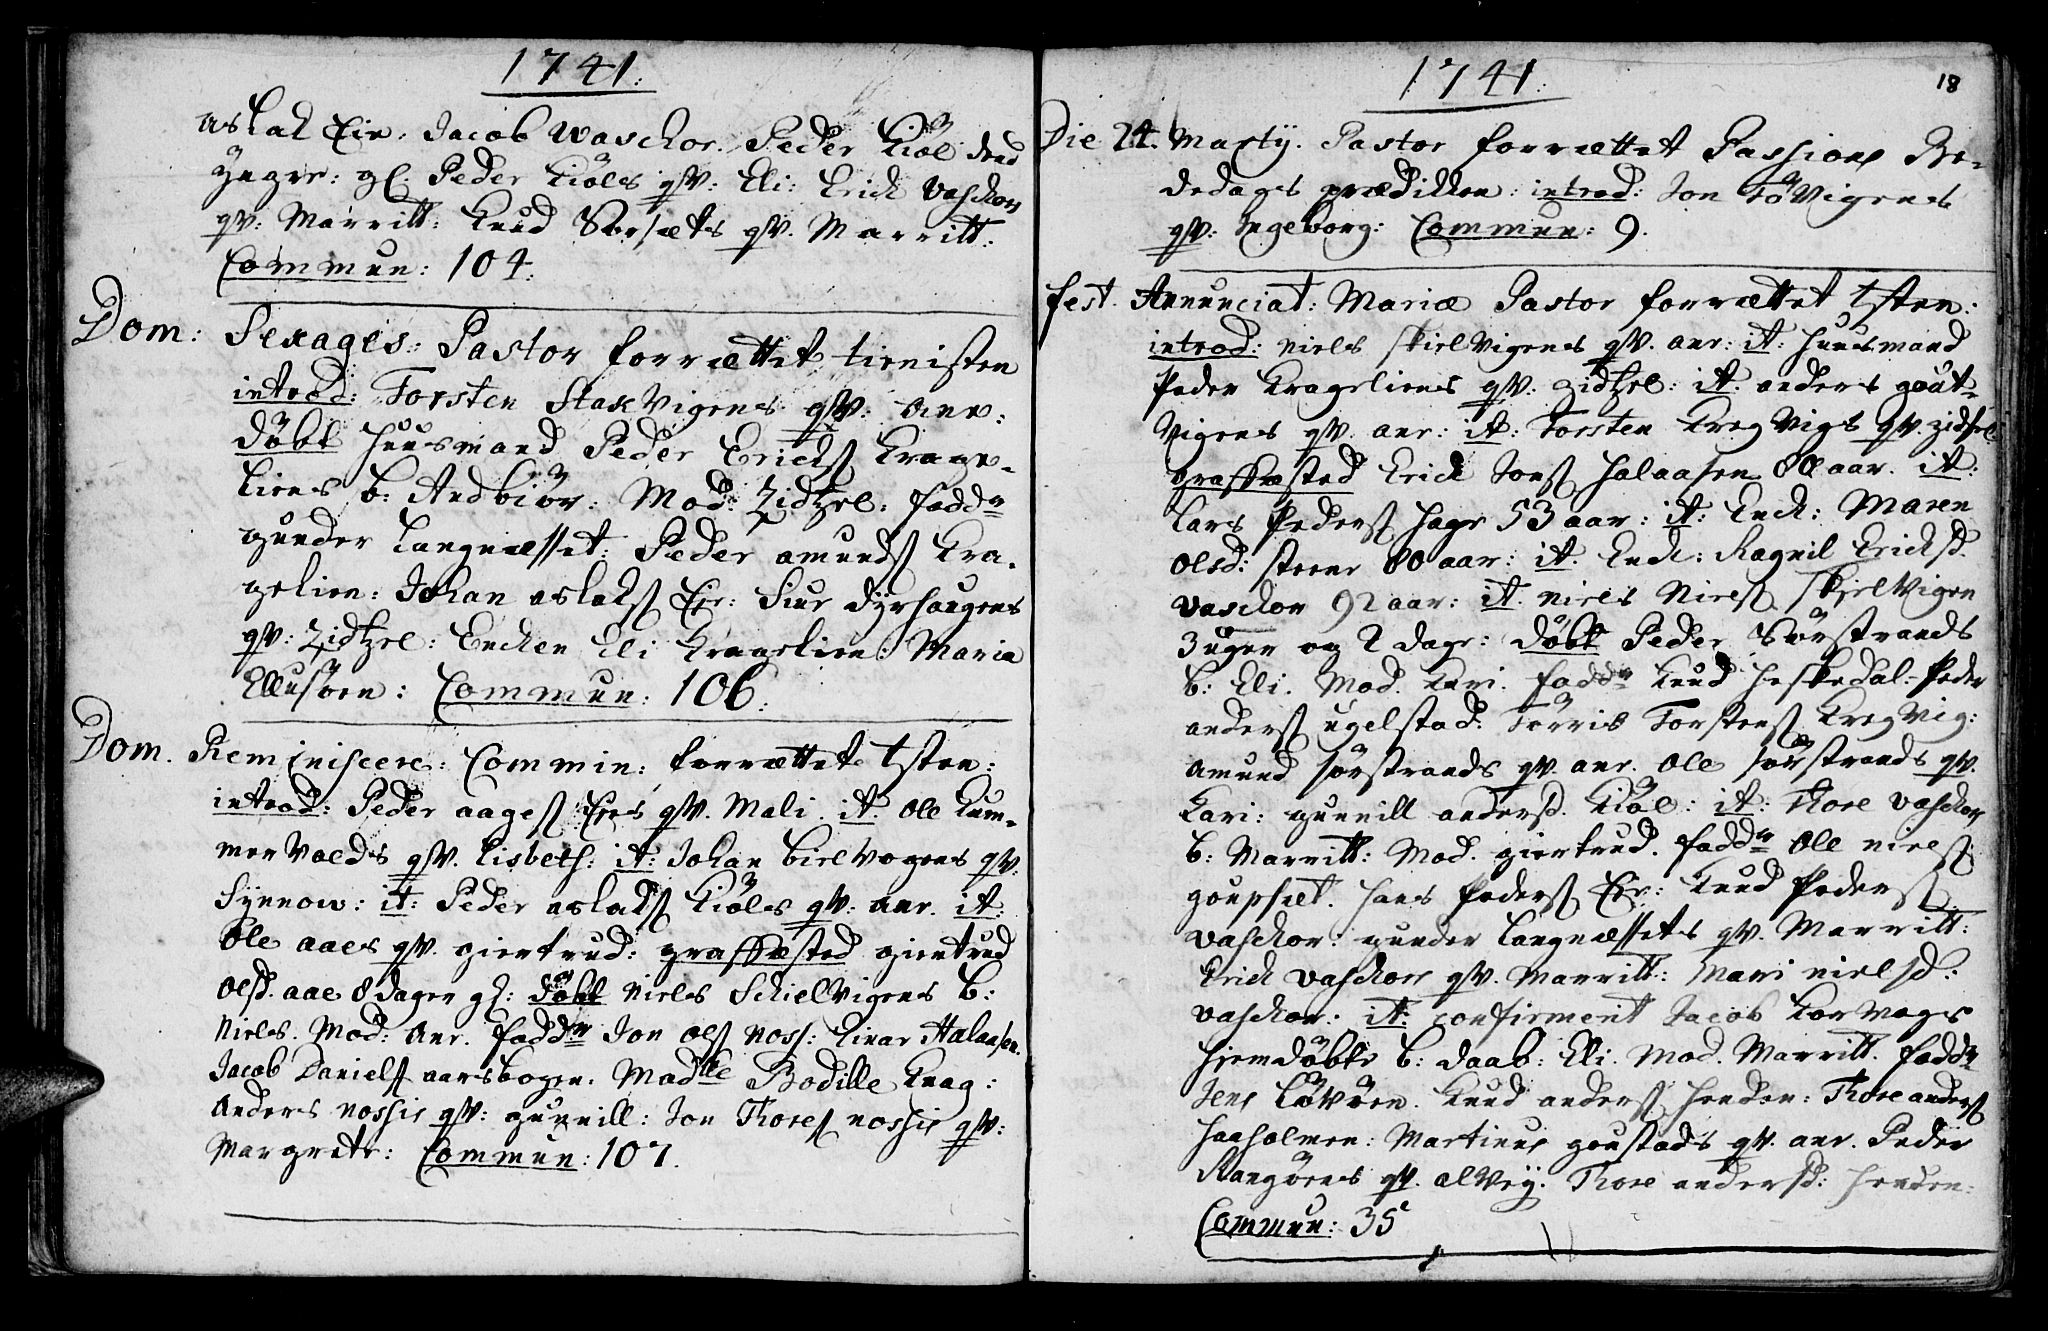 1741.
aslak Eie. Jacob Waschor. Peder Kiöl dend
yngre: gl: Peder Kiöls qv: Eli: Erich Vaschors
qv: Marritt: Knud Sorsæts qv. Marritt:
Commun: 104.
Dom: Sexages: Pastor forrættet tienisten
introd: Torsten StaxVigens qv: Ane:
döbt Huusmand Peder Ericks Krage-
liens b: Andbiör: Mod: Zidtzel: fadd
gunder Langnæsset: Peder amunds Kra-
gelien: Johan aslaks Eie: Siur dyrhaugens
qv: Zidtzel: Encken Eli Kragelien: Maria
Ellusöen: Commun: 106.
Dom. Reminiscere: Commin: forrættet tsten:
introd: Peder aages Eies qv. Mali. it. Ole Kun-
mervolds qv. Lisbeth: it: Johan bielvogens qv:
Synnow: it: Peder aslaks Kiöls qv: ane. it:
Ole aaes qv. giertrud: graffæsted giertrud
Olsd. aae 8 dager gl: döbt Niels Schielvigens b:
Niels. Mod: Ane. fadd Jon Ols noss: Einar Halaasen.
Jacob Daniels aarsbogen. Madlle Bodille Krag:
Anders nossis qv: gunnill: Jon Thores nossis qv:
Margrete: Commun: 107.
1741.
18
Die 24. Martij. Pastor forrættet Passions Be-
dedags prædikken: introd: Jon Tövigens
qv: Ingeborg: Commun: 9.
fest. Annunciat: Mariæ Pastor forrættet tsten:
introd: Niels skielvigens qv. ane: it: Huusmand
Peder Krageliens qv: zidtzel: it: anders gaut-
vigens qv. ane: it: Torsten Kregvigs qv. zidsel
graffæsted Erick Jons Halaasen 80 aar. it:
Lars Peders Hage 53 aar: it: Enck: Maren
Olsd: steene 80 aar: it. Enck: Ragnil Ericksd.
Vaschor 92 aar: it. Niels Niels skjelvigen
3 uger og 2 dage: döbt Peder Sörstrands
b: Eli. Mod. Kari. fadd Knud Heskedal. Peder
anders ugelstad: Törris Torstens Kregvig:
Amund sörstrands qv. ane. Ole sörstrands qv.
Kari: gunnill andersd. Kiöl: it: Thore Vaschors
b: Marritt: Mod. giertrud. fadd Ole niels
goupset. Hans Peders Eie: Knud Peders
Vaschor: gunder Langnæssets qv. Marritt:
Erick Vaschors qv. Marritt: Mari nielsd:
Vaschor. it: confirment Jacob Korvogs
Hjemdöbte b: daab: Eli. Mod. Marritt. fadd
Jens Lövöen. Knud anders Henden: Thore anders
Haaholmen: Martinus goustads qv. ane. Peder
Rangöens qv. ælvey. Thore andersd: Henden:
Commun: 35